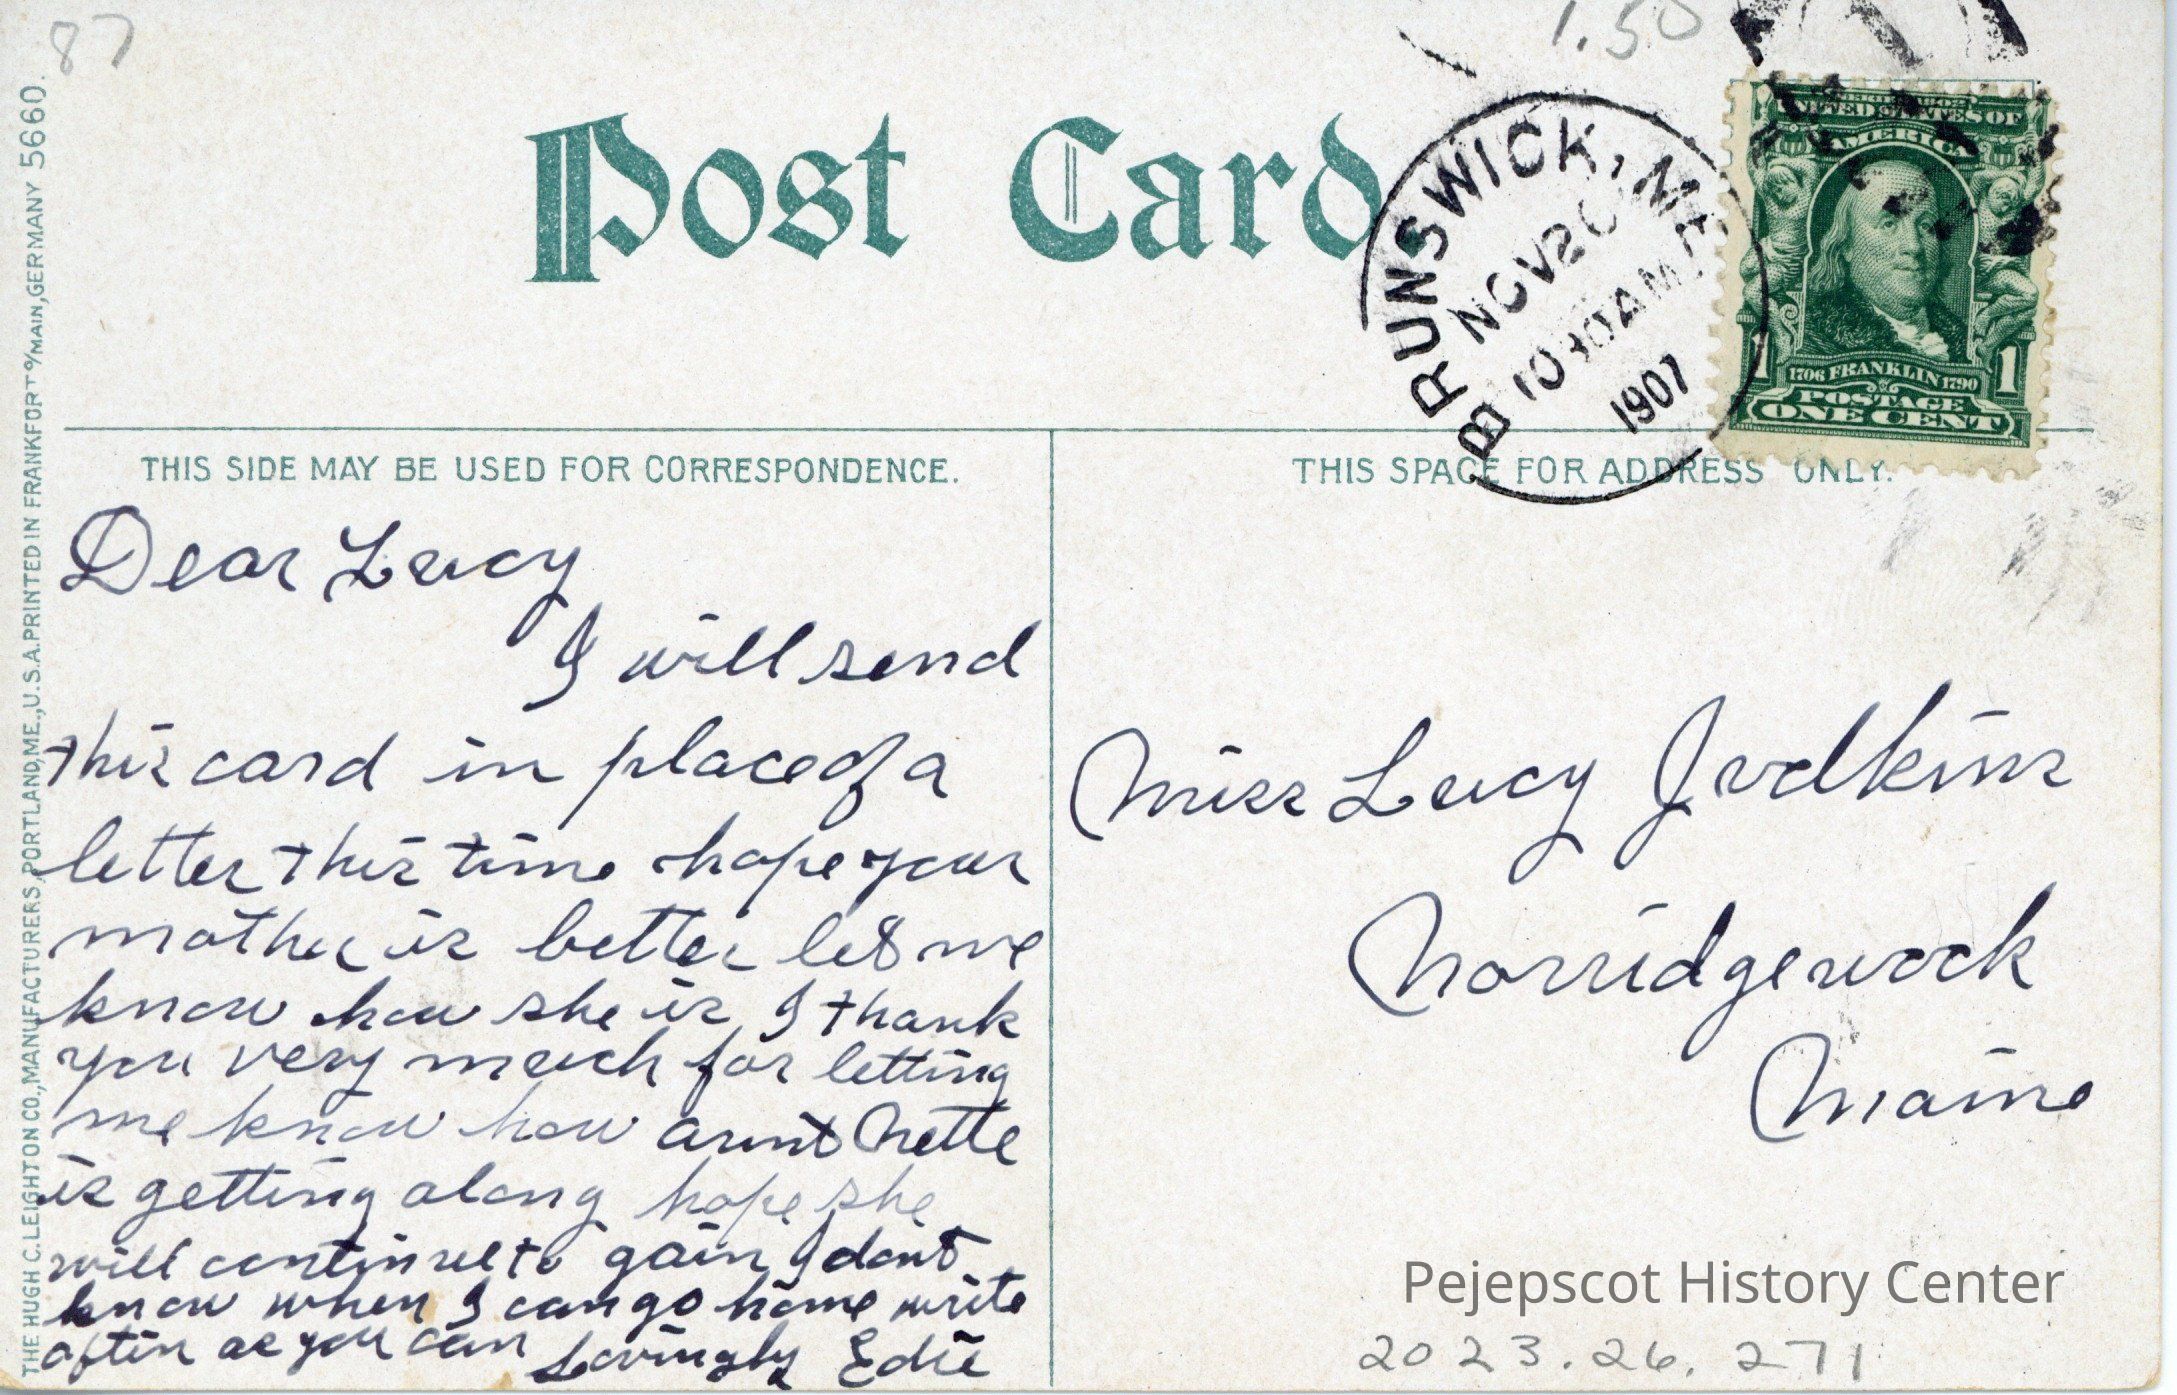 87
1.50
Post Card
BRUNSWICK, ME.
NOV 20
1030AM
1907
UNITED STATES OF
AMERICA
1706 FRANKLIN 1790
POSTAGE
1 ONE CENT 1
THE HUGH C. LEIGHTON CO., MANUFACTURERS, PORTLAND, ME., U.S.A. PRINTED IN FRANKFORT o/MAIN, GERMANY 5660.
THIS SIDE MAY BE USED FOR CORRESPONDENCE.
Dear Lucy
I will send
this card in place of a
letter this time hope your
mother is better let me
know how she is, I thank
you very much for letting
me know how aunt Nette
is getting along hope she
will continue to gain, I dont
know when I can go home write
oftin as you can
Lovingly Edie
THIS SPACE FOR ADDRESS ONLY.
Miss Lucy Judkins
Norridgewock
Maine
Pejepscot History Center
2023.26.271